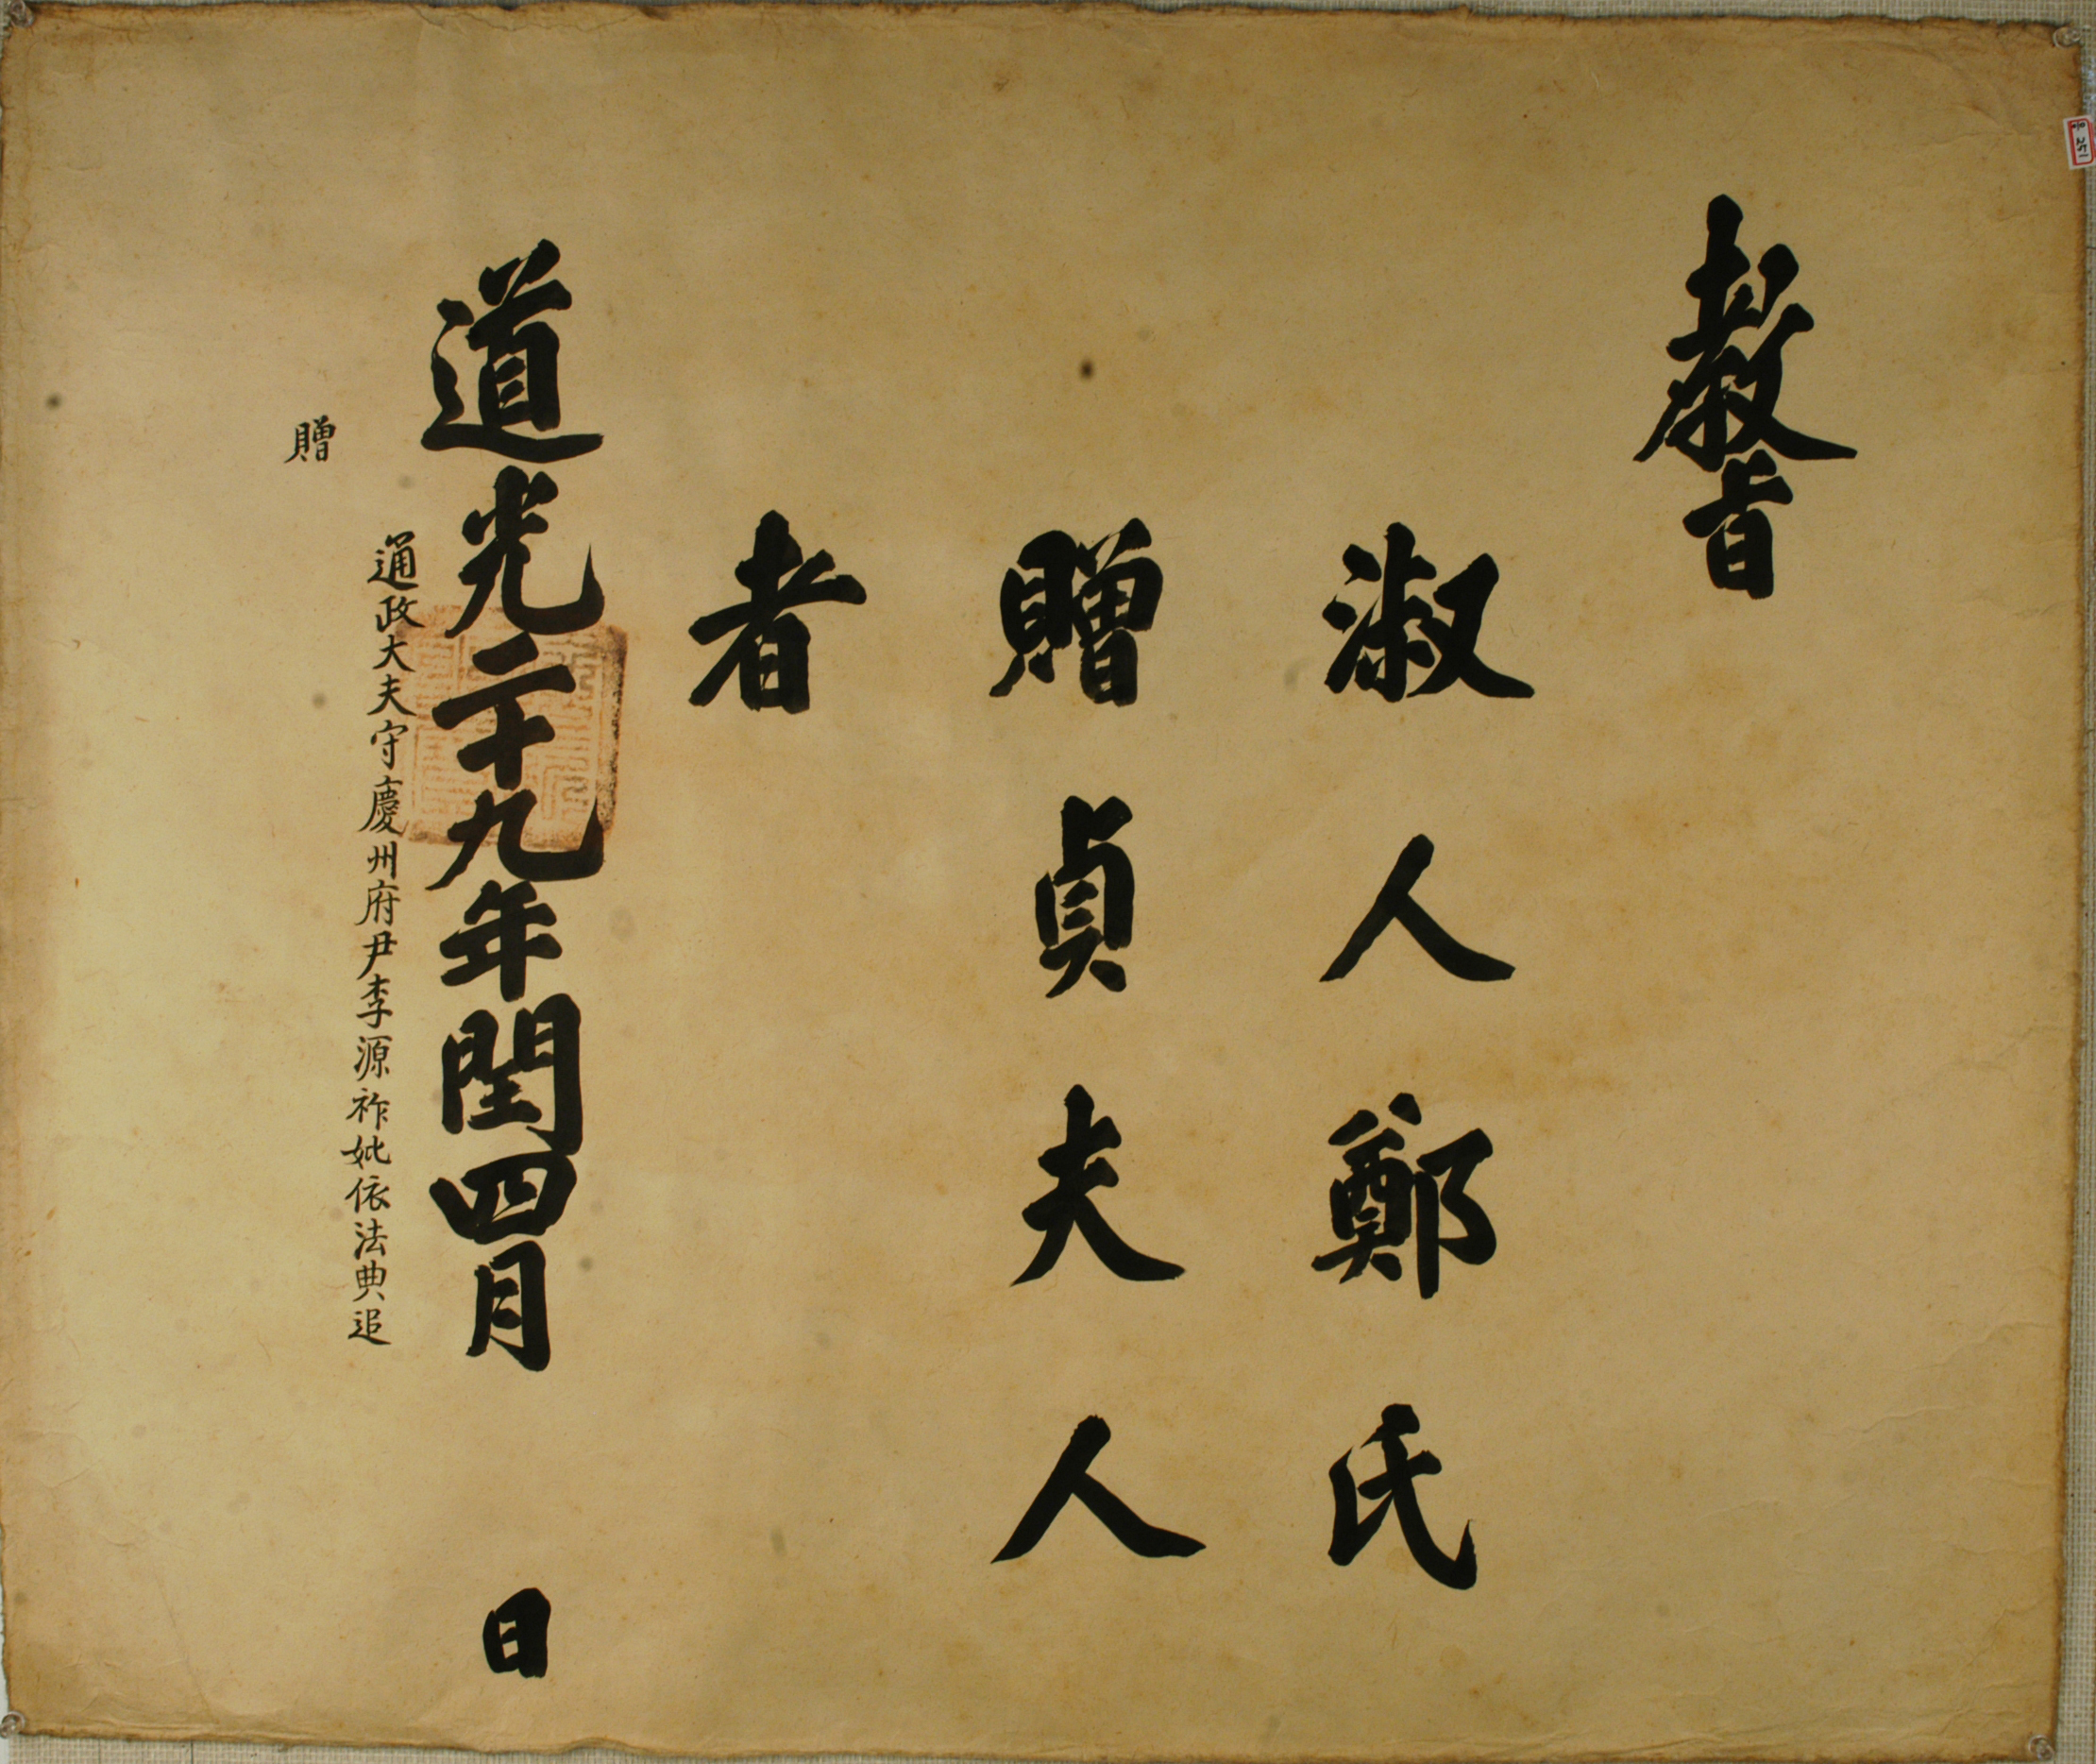 敎旨
淑人鄭氏
贈貞夫人
者
道光二十九年閏四月 日
通政大夫守慶州府尹李源祚妣依法典追
贈